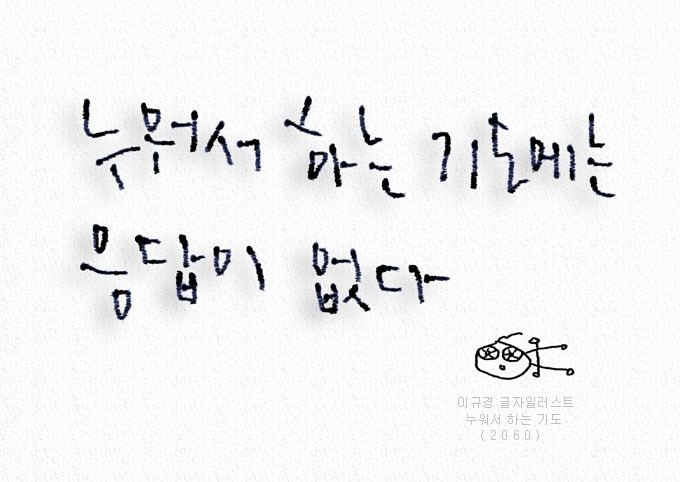 누워서 하는 기도에는
응답이 없다
이규경 글자일러스트
누워서 하는 기도
(2060)